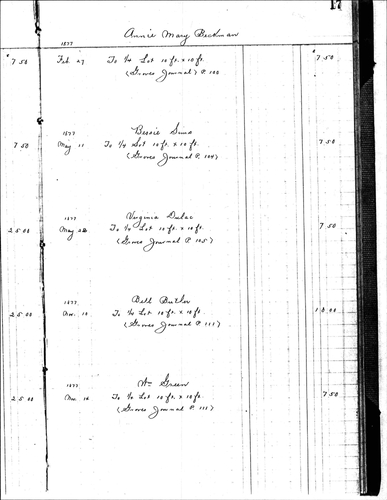 17
Annie Mary Beckman
1877
7 50 Feb 27 To 1/4 Lot 10 ft. x 10 ft. $ 7 50
(Graves Journal P. 100
1877 Bessie Sims
7 50 May 11 To 1/4 Lot 10 ft. x 10 ft. 7 50
(Graves Journal P. 104)
1877 Virginia Dulac
25 00 May 28 To 1/4 Lot 10 ft. x 10 ft. 7 50
(Graves Journal P. 105)
1877 Bell Butler
25 00 Nov. 10 To 1/4 Lot 10 ft. x 10 ft.
(Graves Journal P. 111)
1877 Wm Green
25 00 Nov. 16 To 1/4 Lot 10 ft. x 10 ft. 7 50
(Graves Journal P. 111)